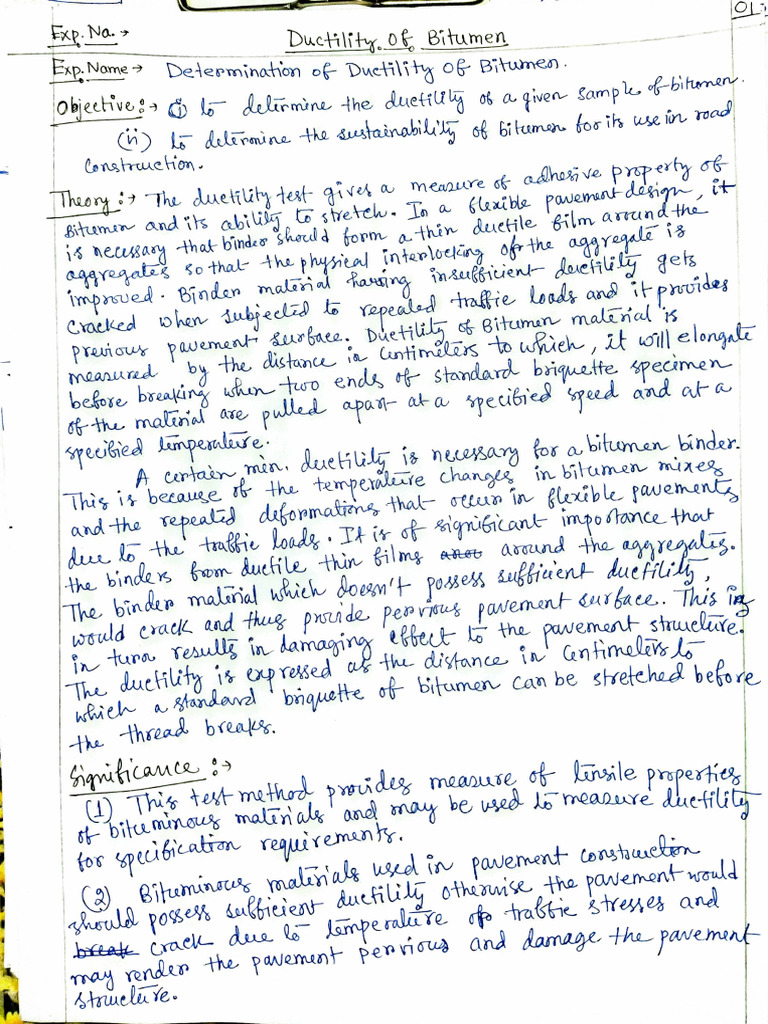 01
Exp. No. → Ductility Of Bitumen
Exp. Name → Determination of Ductility Of Bitumen.
Objective :→ (i) to determine the ductility of a given sample of bitumen.
(ii) to determine the sustainability of bitumen for its use in road
construction.
Theory :→ The ductility test gives a measure of adhesive property of
Bitumen and its ability to stretch. In a flexible pavement design, it
is necessary that binder should form a thin ductile film around the
aggregates so that the physical interlocking of the aggregate is
improved. Binder material having insufficient ductility gets
cracked when subjected to repeated traffic loads and it provides
previous pavement surface. Ductility of Bitumen material is
measured by the distance in centimeters to which, it will elongate
before breaking when two ends of standard briquette specimen
of the material are pulled apart at a specified speed and at a
specified temperature.
A certain min. ductility is necessary for a bitumen binder.
This is because of the temperature changes in bitumen mixes
and the repeated deformations that occur in flexible pavements
due to the traffic loads. It is of significant importance that
the binders from ductile thin films around the aggregates.
The binder material which doesn't possess sufficient ductility,
would crack and thus provide pervious pavement surface. This in
in turn results in damaging effect to the pavement structure.
The ductility is expressed as the distance in centimeters to
which a standard briquette of bitumen can be stretched before
the thread breaks.
Significance :→
(1) This test method provides measure of tensile properties
of bituminous materials and may be used to measure ductility
for specification requirements.
(2) Bituminous materials used in pavement construction
should possess sufficient ductility otherwise the pavement would
break crack due to temperature of traffic stresses and
may render the pavement pervious and damage the pavement
structure.